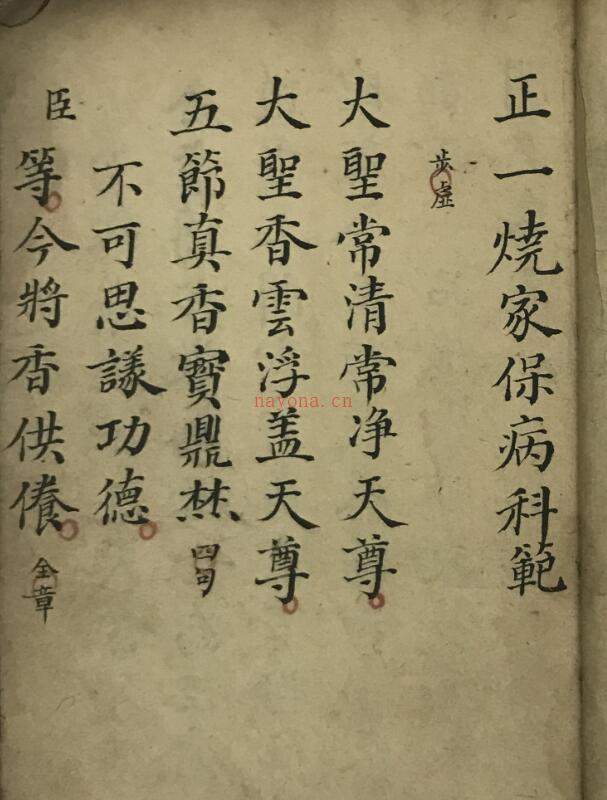 正一烧家保病科範
步虛
大聖常清常净天尊
大聖香雲浮盖天尊
五節真香寳鼎焚四句
不可思議功德
臣等今將香供養全章
nayona.cn